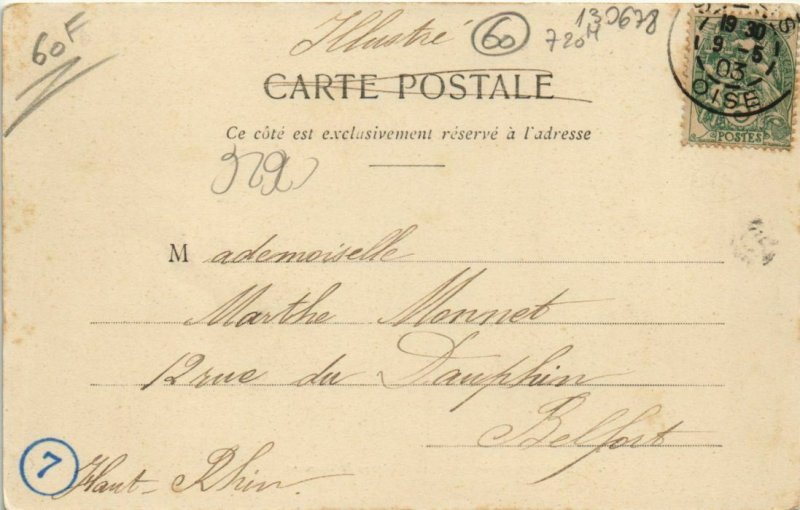 60F
Illustré
60
130678
720M
CARTE POSTALE
Ce côté est exclusivement réservé à l'adresse
19 30
9 5
03
OISE
POSTES
Mademoiselle
Marthe Monnet
12 rue du Dauphin
Belfort
Haut-Rhin.
7